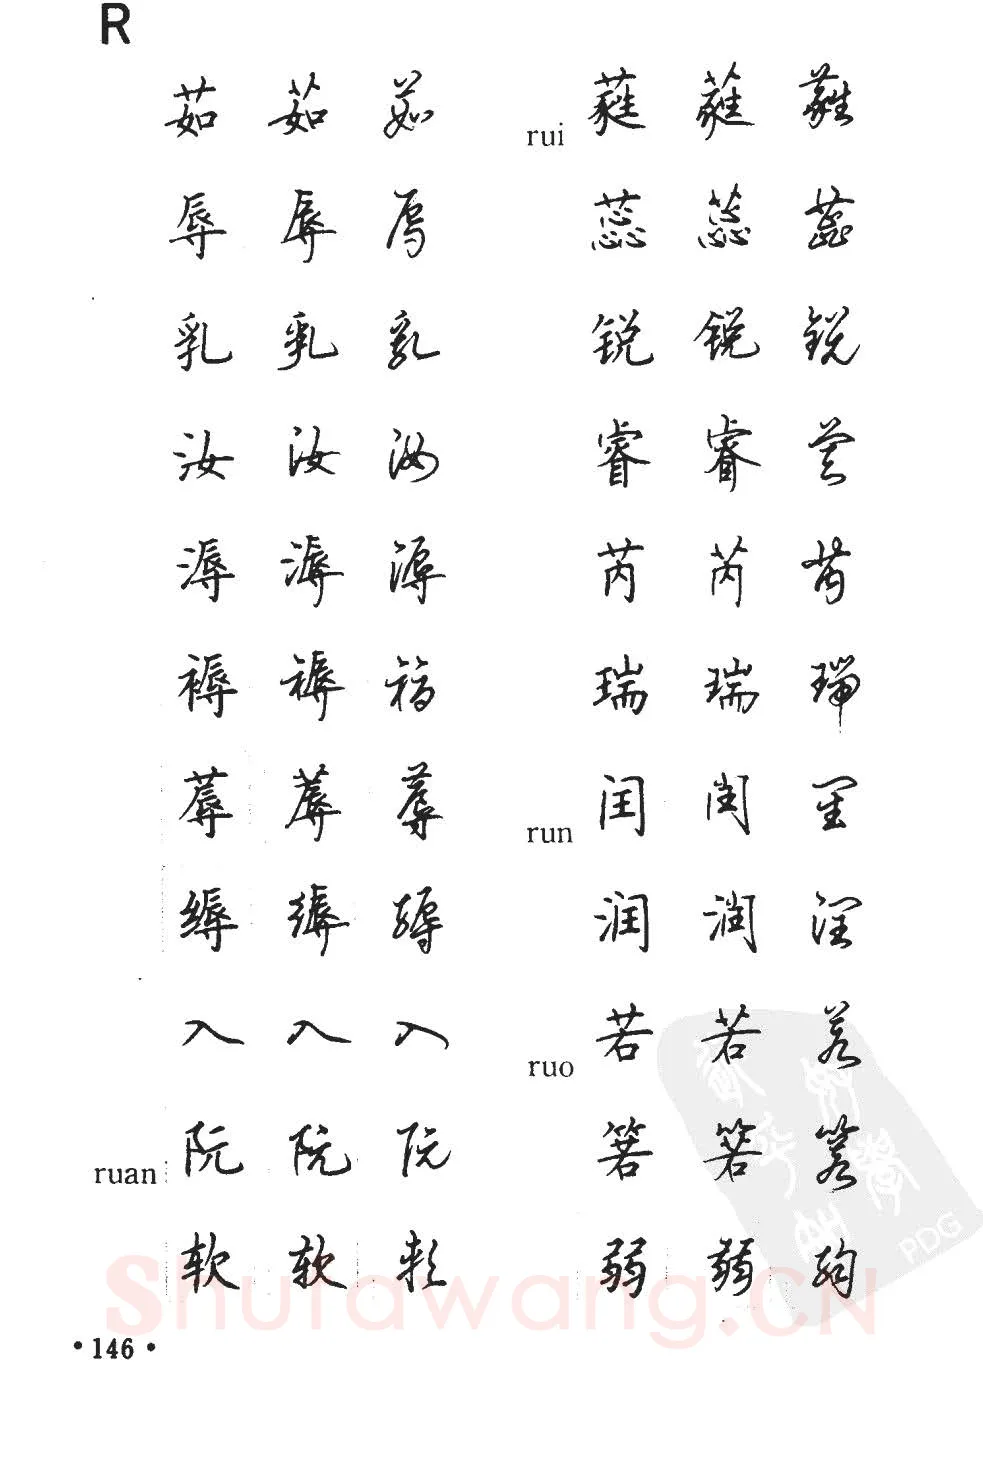 R
茹 茹 茹
辱 辱 辱
乳 乳 乳
汝 汝 汝
溽 溽 溽
褥 褥 褥
蓐 蓐 蓐
缛 缛 缛
入 入 入
ruan 阮 阮 阮
软 软 软
rui 蕤 蕤 蕤
蕊 蕊 蕊
锐 锐 锐
睿 睿 睿
芮 芮 芮
瑞 瑞 瑞
run 闰 闰 闰
润 润 润
ruo 若 若 若
箬 箬 箬
弱 弱 弱
PDG
Shufawang.CN
·146·